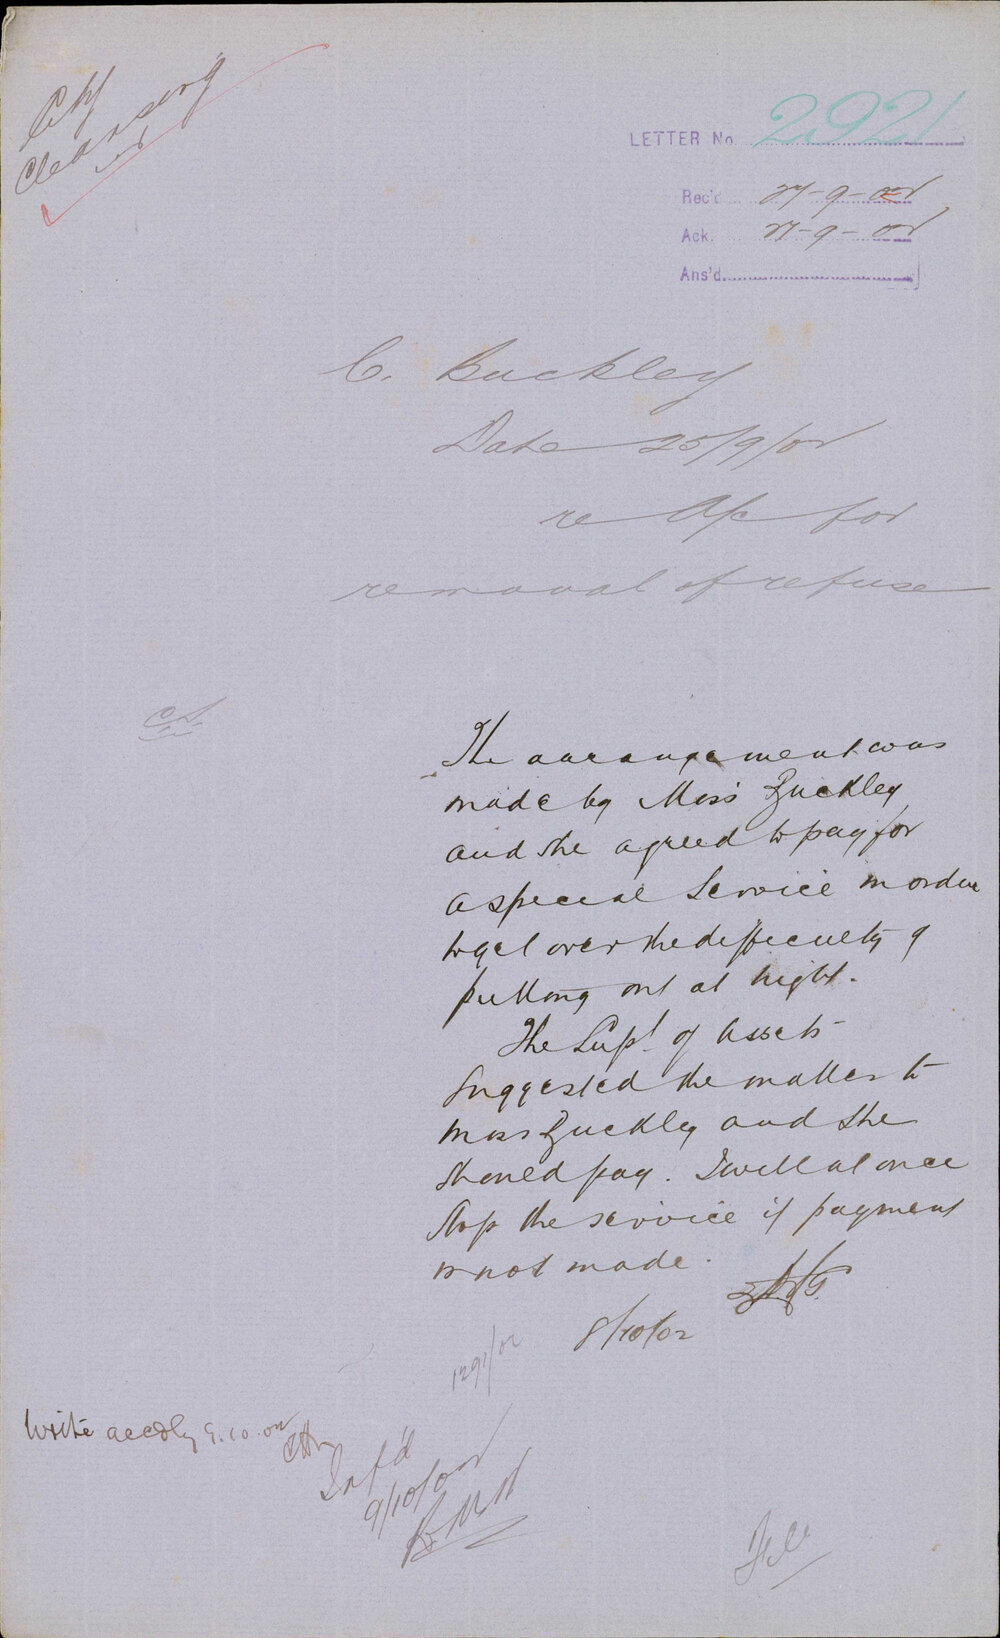 City
Cleansing
LETTER No. 2921
Rec'd 27-9-02
Ack. 27-9-02
Ans'd
C. Buckley
Date 25/9/02
re A/c for
removal of refuse
The arrangement was
made by Miss Buckley
and she agreed to pay for
a special service in order
to get over the difficulty of
putting out at night.
The Supt. of Assets
suggested the matter to
Miss Buckley and she
should pay. I will at once
stop the service if payment
is not made.
8/10/02
1291/02
Write accdly 9.10.02
Inf'd
9/10/02
File